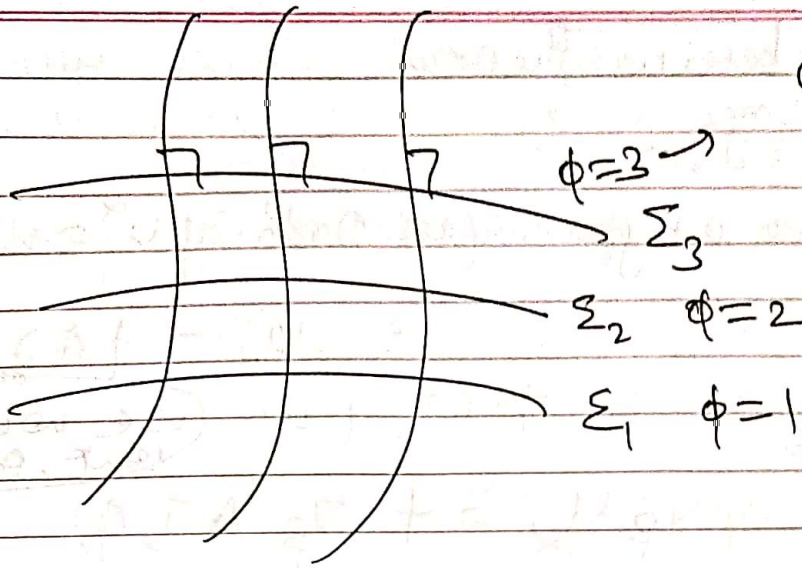 ϕ=3
Σ₃
Σ₂ ϕ=2
Σ₁ ϕ=1